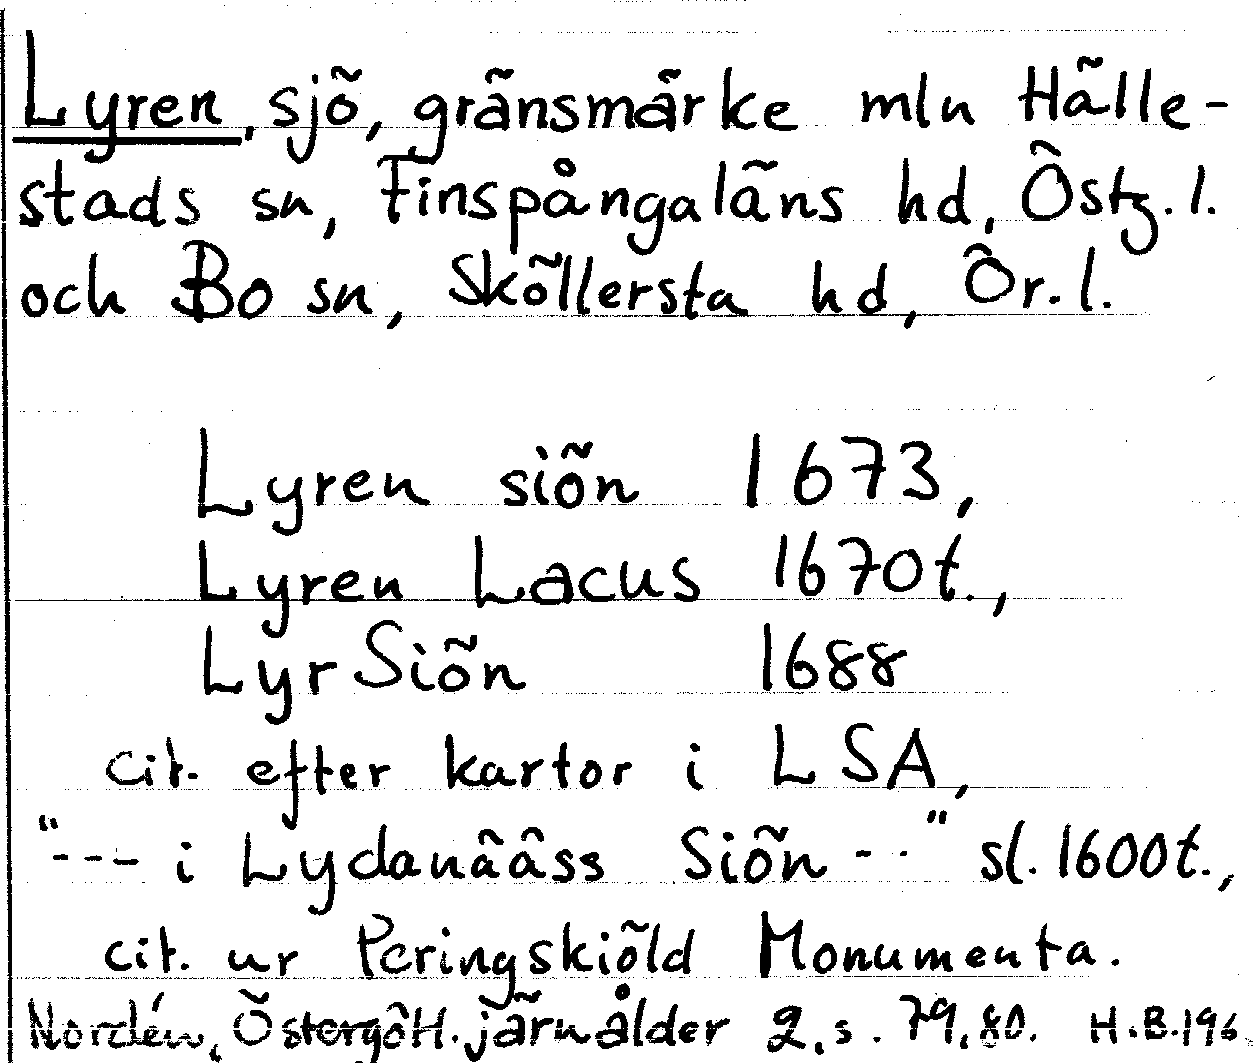 Lyren, sjö, gränsmärke mln Hälle-
stads sn, Finspångaläns hd, Östg. l.
och Bo sn, Sköllersta hd, Ör. l.
Lyren siön 1673,
Lyren Lacus 1670t.,
Lyr Siön 1688
cit. efter kartor i LSA,
"--- i Lydanääss Siön --" sl. 1600t.,
cit. ur Peringskiöld Monumenta.
Nordén, Östergötl. järnålder 2, s. 79, 80. H.B.196